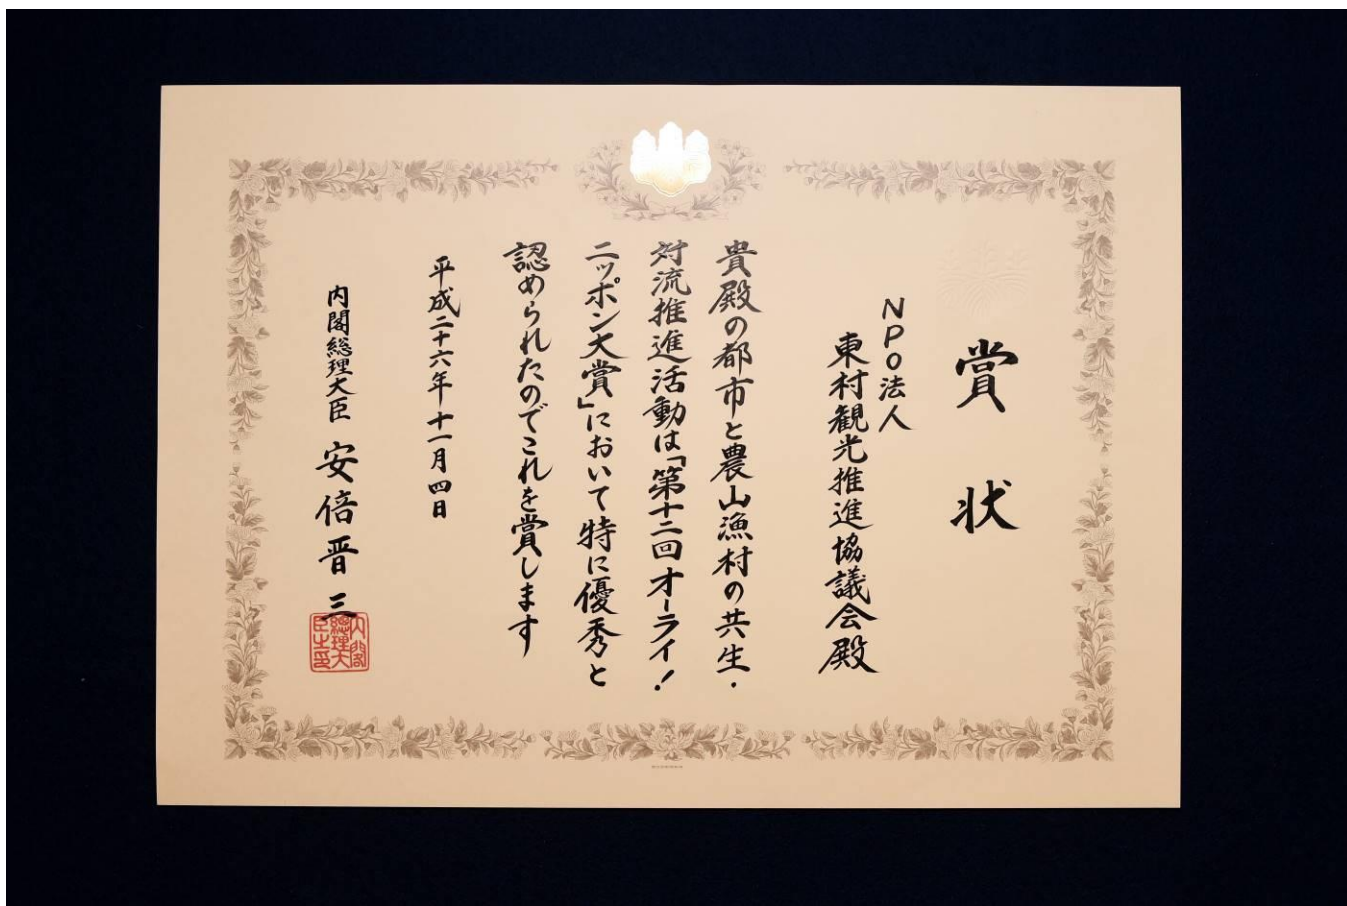 賞状
NPO法人
東村観光推進協議会殿
貴殿の都市と農山漁村の共生・
対流推進活動は「第十二回オーライ!
ニッポン大賞」において特に優秀と
認められたのでこれを賞します
平成二十六年十一月四日
内閣総理大臣 安倍晋三
内閣
総理大
臣之印